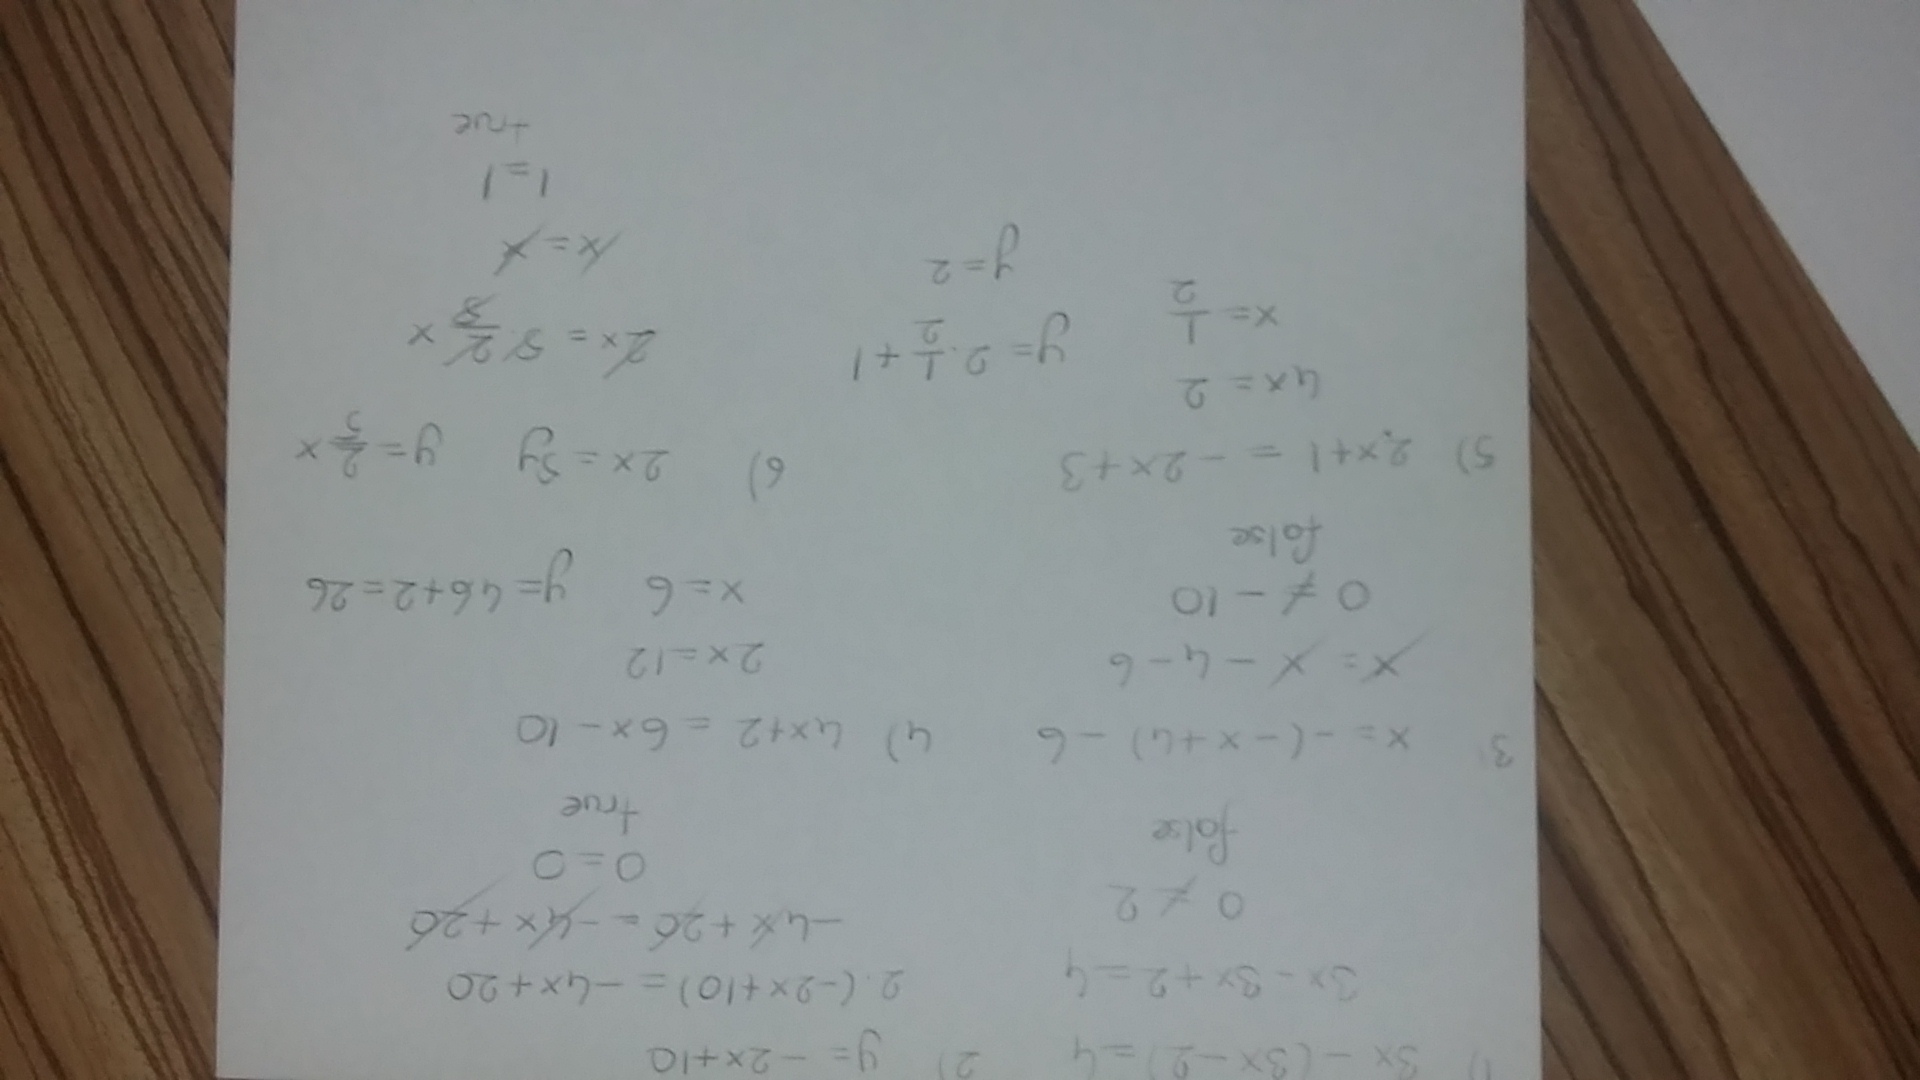 1) 3x - (3x - 2) = 4
3x - 3x + 2 = 4
0 ≠ 2
false
2) y = - 2x + 10
2·(-2x + 10) = -4x + 20
-4x + 20 = -4x + 20
0 = 0
true
3) x = - (-x + 4) - 6
x = x - 4 - 6
0 ≠ - 10
false
4) 4x + 2 = 6x - 10
2x = 12
x = 6 y = 4·6 + 2 = 26
5) 2x + 1 = - 2x + 3
4x = 2
x = 1/2
y = 2·1/2 + 1
y = 2
6) 2x = 5y y = 2/5 x
2x = 5·2/5 x
x = x
1 = 1
true